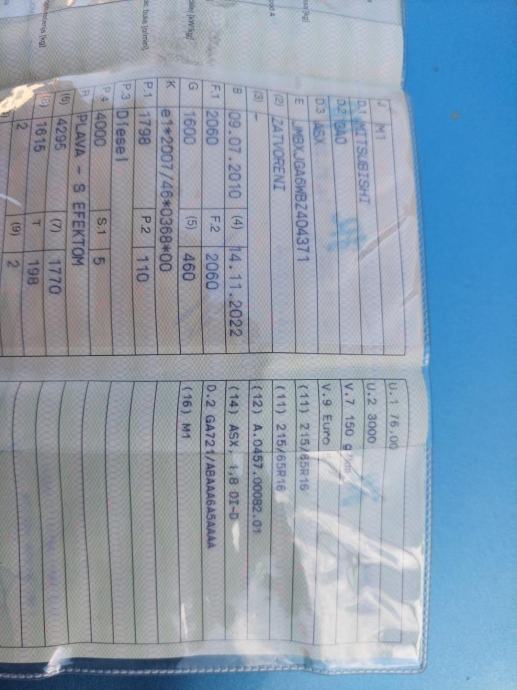 J M1
D.1 MITSUBISHI
D.2 GA0
D.3 ASX
E JMBXJGA6WBZ404371
(2) ZATVORENI
(3) -
B 09.07.2010 (4) 14.11.2022
F.1 2060 F.2 2060
G 1600 (5) 460
K e1*2007/46*0368*00
P.1 1798 P.2 110
P.3 Diesel
P.4 4000 S.1 5
R PLAVA - S EFEKTOM
(6) 4295 (7) 1770
(8) 1615 T 198
2 (9) 2
U.1 76,00
U.2 3000
V.7 150
V.9 Euro
(11) 215/65R16
(11) 215/65R16
(12) A.0457.00082.01
(14) ASX, 1,8 DI-D
D.2 GA721/ABAAA6A5AAAA
(16) M1